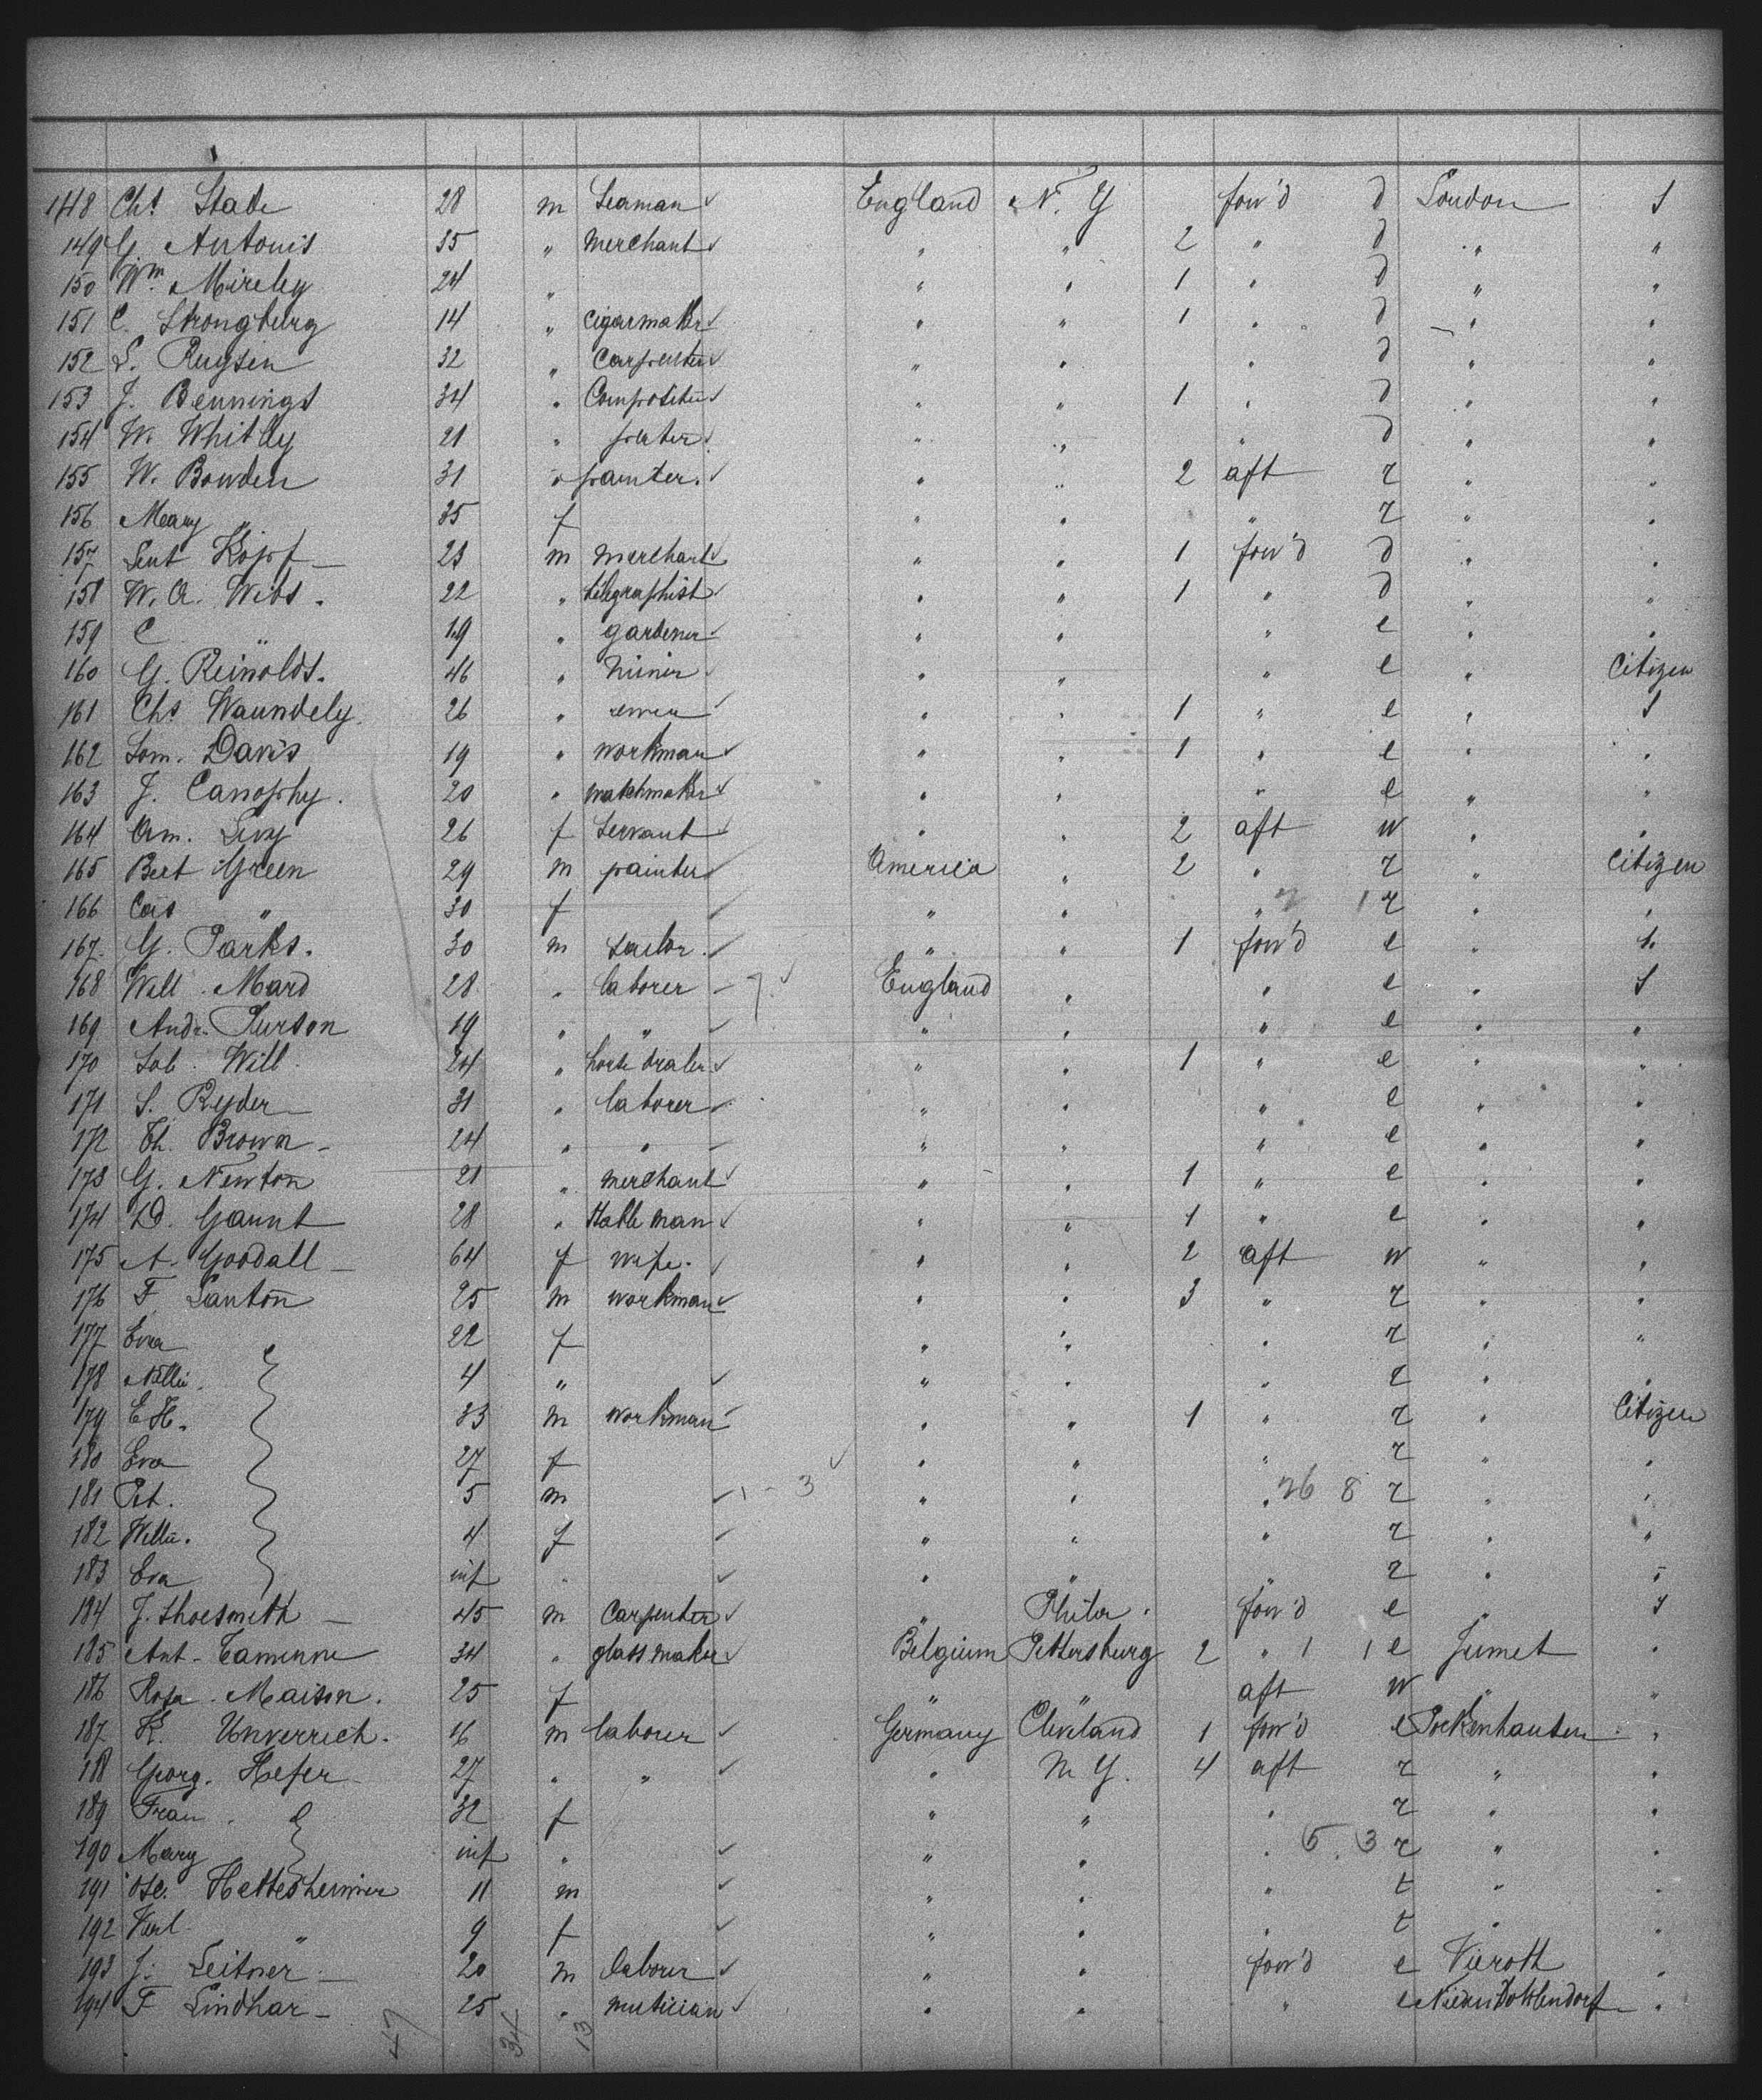 148 Chs Stade 28 m Seaman ✓ England N. Y fow'd d London S
149 G Antonis 35 " merchant ✓ " " 2 " d " "
150 Wm. Mireley 24 " " " 1 " d " "
151 C. Strongburg 14 " cigarmaker ✓ " " 1 " d " "
152 S. Ruysin 32 " Carpenter ✓ " " " d " "
153 J. Bennings 34 " Compositeur ✓ " " 1 " d " "
154 W. Whitley 21 " " " " d " "
155 W. Bowden 31 " painter. ✓ " " 2 aft r " "
156 Meary " 35 f " " " r " "
157 Kopf 23 m merchant ✓ " " 1 fow'd d " "
158 W. A. Wibs. 22 " telegraphist ✓ " " 1 " d " "
159 C " 19 " gardener ✓ " " " e " "
160 G. Reinolds. 46 " miner ✓ " " " e " Citizen
161 Chs Waundely. 26 " ✓ " " 1 " e " S
162 Sam. Davis 19 " workman ✓ " " 1 " e " "
163 J. Canophy. 20 " watchmaker ✓ " " " e " "
164 Am. Levy 26 f Servant ✓ " " 2 aft w " "
165 Bert Green 29 m painter ✓ America " 2 " r " Citizen
166 " 30 f ✓ " " " 2 1 r " "
167. G. Parks. 30 m tailor. ✓ " " 1 fow'd e " S.
168 Will. Mard 28 " laborer – 7. ✓ England " " e " S
169 Andr. Purson 19 " " ✓ " " " e " "
170 Sob. Will. 24 " horse dealer ✓ " " 1 " e " "
171 S. Ryder 31 " laborer ✓ " " " e " "
172 Th. Brown – 24 " " – " " " e " "
173 G. Newton 21 " merchant ✓ " " 1 " e " "
174 D. Gaunt 28 " Stable man ✓ " " 1 " e " "
175 A. Goodall – 64 f wife. ✓ " " 2 aft w " "
176 F. Santon 25 m workman ✓ " " 3 " r " "
177 Eva 22 f " " " r " "
178 Nellie. 4 " ✓ " " " r " "
179 E H. 33 m workman ✓ " " 1 " r " Citizen
180 Eva 27 f ✓ " " " r " "
181 Pet. 5 m ✓ 1 – 3 " " " 26 8 r " "
182 Willie. 4 f ✓ " " " r " "
183 Eva inf " ✓ " " " r " "
184 J. Shoesmith – 45 m Carpenter ✓ " Phila. fow'd e " S
185 Ant. Tamenne 34 " glass maker ✓ Belgium Pettersburg 2 " 1 1 e Jumet "
186 Rosa. Maison. 25 f " " aft w " "
187 K. Unverrich. 16 m laborer ✓ Germany Cleveland 1 fow'd e Pockenhausen "
188 Georg. Hefer 27 " " ✓ " N Y. 4 aft r " "
189 Frau. " 32 f " " " r " "
190 Mary inf " ✓ " " " 5. 3 r " "
191 Hettesheimer 11 m ✓ " " " t " "
192 Karl " 9 f ✓ " " " t " "
193 J. Leitner – 20 m laborer ✓ " " fow'd e Vieroth "
194 F Lindhar – 25 " musician ✓ " " " e "
47 34 13